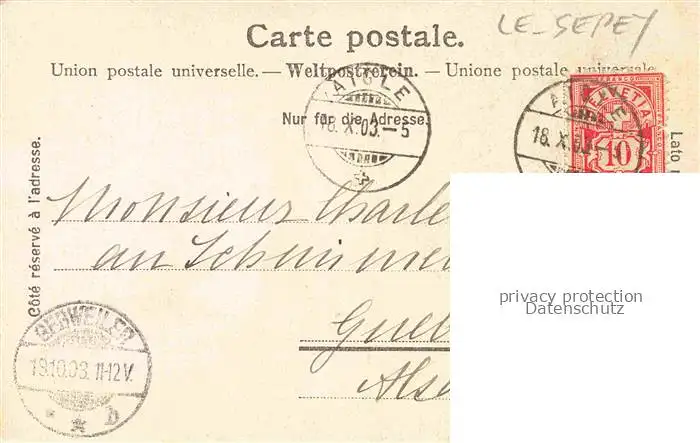 LE-SEPEY
Carte postale.
Union postale universelle. — Weltpostverein. — Unione postale universale
AIGLE
18.X.03.-5
Nur für die Adresse.
AIGLE
18.X.03.-
HELVETIA
FRANCO
10
Lato
Côté réservé à l'adresse.
Monsieur Charle
an
Gue
Alsa
GEBWEILER
19.10.03. 11-12V.
* b
privacy protection
Datenschutz